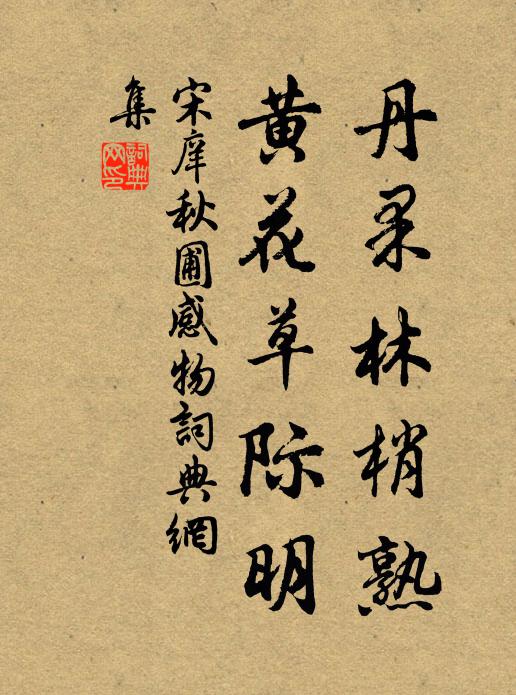 丹果林梢熟
黄花草际明
宋庠秋圃感物詞典網
集
詞典網印